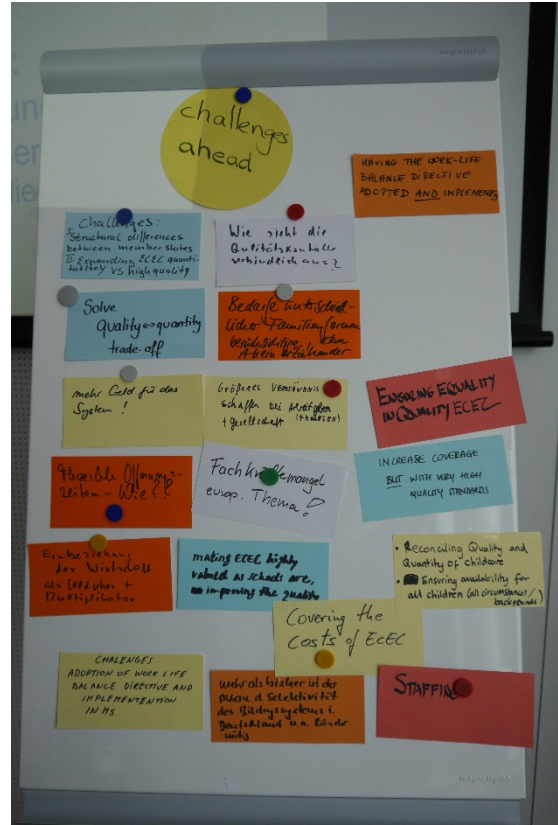 challenges
ahead
HAVING THE WORK-LIFE
BALANCE DIRECTIVE
ADOPTED AND IMPLEMENTED
Challenges:
I Structural differences
between member states
II Expanding ECEC quanti-
tatively VS high quality
Wie sieht die
Qulitätskontolle
verbindlich aus?
Solve
quality↔quantity
trade-off
Bedarfe unterschied-
licher Familienformen
berücksichtigen
Alleinerziehender
mehr Geld für das
System!
Größeres Verständnis
schaffen bei Arbeitgebern
+ Gesellschaft
ENSURING EQUALITY
IN QUALITY ECEC
Flexible Öffnungs-
zeiten - Wie??
Fachkräftemangel
europ. Thema?
INCREASE COVERAGE
BUT WITH VERY HIGH
QUALITY STANDARDS
Einbeziehung
der Wirtschaft
als Geldgeber +
Multiplikator
making ECEC highly
valued as schools are,
improving the quality
• Reconciling Quality and
Quantity of childcare
• Ensuring availability for
all children (all circumstances/
backgrounds)
Covering the
Costs of ECEC
CHALENGES
ADOPTION OF WORK LIFE
BALANCE DIRECTIVE AND
IMPLEMENTENTION
IN MS
Mehr als bisher ist der
d Selektivität
des Bildungssystems i.
Deutschland u.a. Länder
nötig
STAFFING